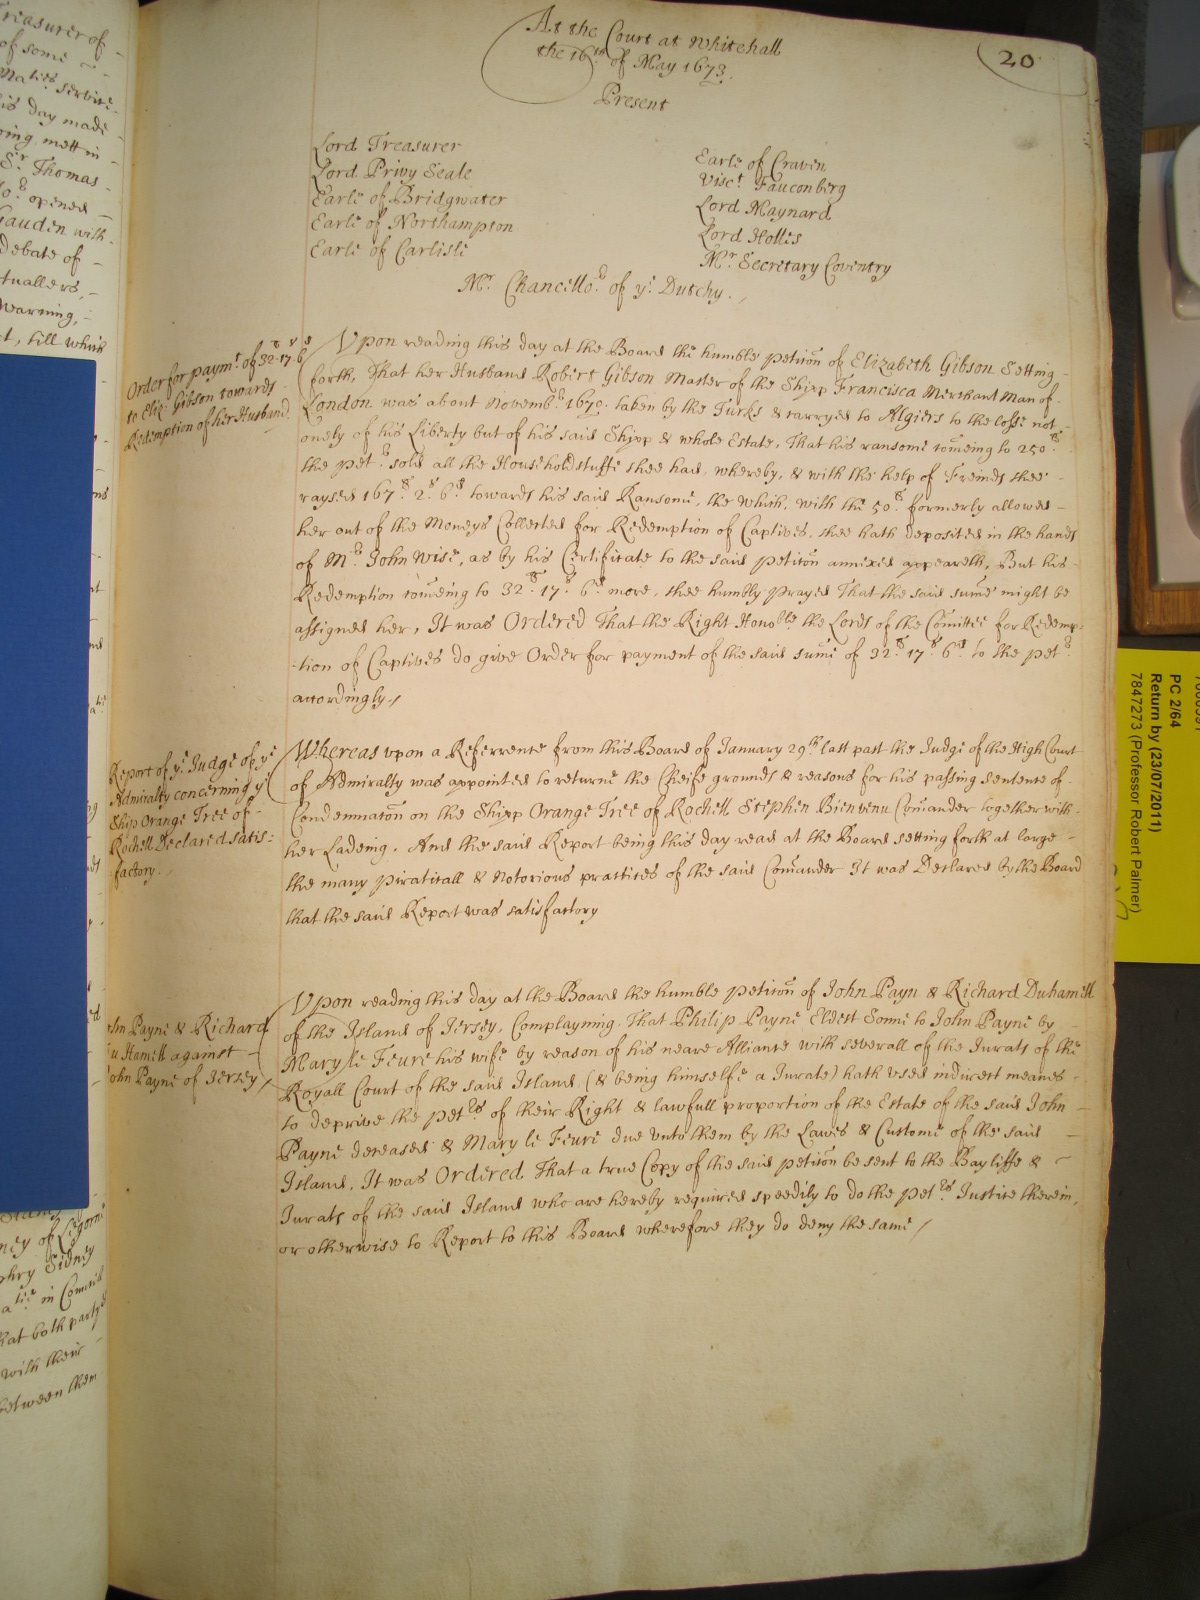 At the Court at Whitehall
the 16th of May 1673.
20
Present
Lord Treasurer
Lord Privy Seale
Earle of Bridgwater
Earle of Northampton
Earle of Carlisle
Earle of Craven
Visct Fauconberg
Lord Maynard
Lord Holles
Mr Secretary Coventry
Mr Chancellor of ye Dutchy.
Order for paymt of 32-17-6
to Eliz: Gibson towards
Redemption of her Husband.
Upon reading this day at the Board the humble petition of Elizabeth Gibson Setting
forth, That her Husband Robert Gibson Master of the Shipp Francisca Merchant Man of
London was about Novembr 1670. taken by the Turks & carryed to Algiers to the losse not
onely of his Liberty but of his said Shipp & whole Estate, That his ransome comeing to 250li
the petr sold all the Household stuffe shee had, whereby, & with the help of Freinds shee
raysed 167li 2s 6d towards his said Ransome, the which, with the 50li formerly allowed
her out of the Moneys Collected for Redemption of Captives, shee hath deposited in the hands
of Mr John Wise, as by his Certificate to the said petition annexed appeareth, But his
Redemption comeing to 32li 17s 6d more, shee humbly prayed That the said sume might be
assigned her, It was Ordered That the Right Honoble the Lords of the Comittee for Redemp-
-tion of Captives do give Order for payment of the said sume of 32li 17s 6d to the petr
accordingly/
Report of ye Judge of ye
Admiralty concerning ye
Ship Orange Tree of
Rochell Declared satis:
factory.
Whereas upon a Referrence from this Board of January 29th last past the Judge of the High Court
of Admiralty was appointed to returne the Cheife grounds & reasons for his passing sentence of
Condemnation on the Shipp Orange Tree of Rochell Stephen Bienvenu Comander together with
her Ladeing. And the said Report being this day read at the Board setting forth at large
the many Piraticall & Notorious practices of the said Comander It was Declared by the Board
that the said Report was satisfactory
John Payne & Richard
Du Hamell against
John Payne of Jersey
Upon reading this day at the Board the humble petition of John Payn & Richard Duhamell
of the Island of Jersey, Complayning That Philip Payne Eldest Sonne to John Payne by
Mary le Feure his wife by reason of his neare Alliance with severall of the Jurats of the
Royall Court of the said Island (& being himselfe a Jurate) hath used indirect meanes
to deprive the petrs of their Right & lawfull proportion of the Estate of the said John
Payne deceased & Mary le Feure due unto them by the Lawes & Custome of the said
Island. It was Ordered That a true Copy of the said petition be sent to the Bayliffe &
Jurats of the said Island who are hereby required speedily to do the petrs Justice therein,
or otherwise to Report to this Board wherefore they do deny the same/
PC 2/64
Return by (23/07/2011)
7847273 (Professor Robert Palmer)